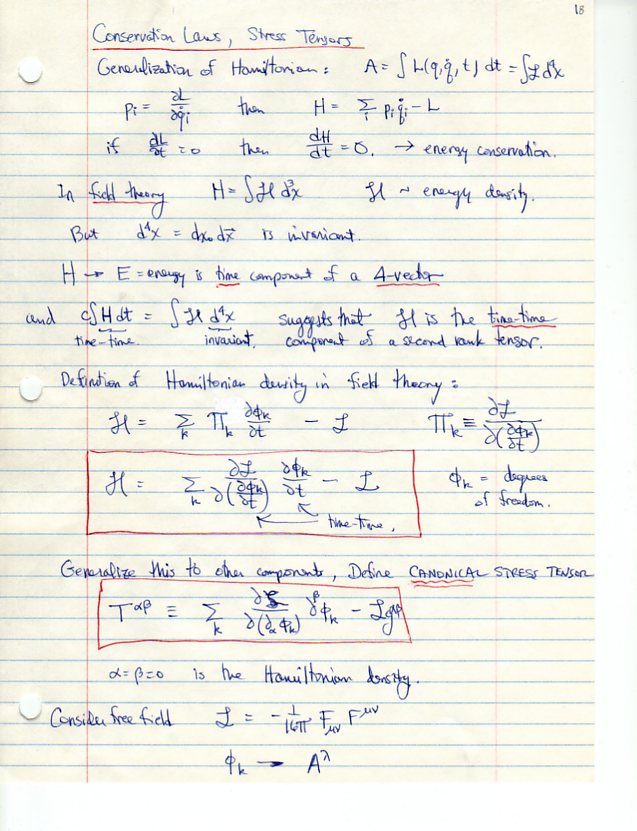 18
Conservation Laws, Stress Tensors
Generalization of Hamiltonian: A = ∫ L(q, q̇, t) dt = ∫ℒ d⁴x
pᵢ = ∂L/∂q̇ᵢ then H = Σᵢ pᵢq̇ᵢ − L
if ∂L/∂t = 0 then dH/dt = 0. → energy conservation.
In field theory H = ∫ℋ d³x ℋ ~ energy density.
But d⁴x = dx₀ dx⃗ is invariant.
H → E = energy is time component of a 4-vector
and c∫H dt = ∫ℋ d⁴x suggests that ℋ is the time-time
time-time invariant. component of a second rank tensor.
Definition of Hamiltonian density in field theory:
ℋ = Σₖ Πₖ ∂φₖ/∂t − ℒ Πₖ ≡ ∂ℒ/∂(∂φₖ/∂t)
ℋ = Σₖ ∂ℒ/∂(∂φₖ/∂t) ∂φₖ/∂t − ℒ φₖ = degrees
of freedom.
time-time.
Generalize this to other components, Define CANONICAL STRESS TENSOR
T^αβ ≡ Σₖ ∂ℒ/∂(∂_α φₖ) ∂^β φₖ − ℒg^αβ
α=β=0 is the Hamiltonian density.
Consider free field ℒ = −1/16π F_μν F^μν
φₖ → A^λ